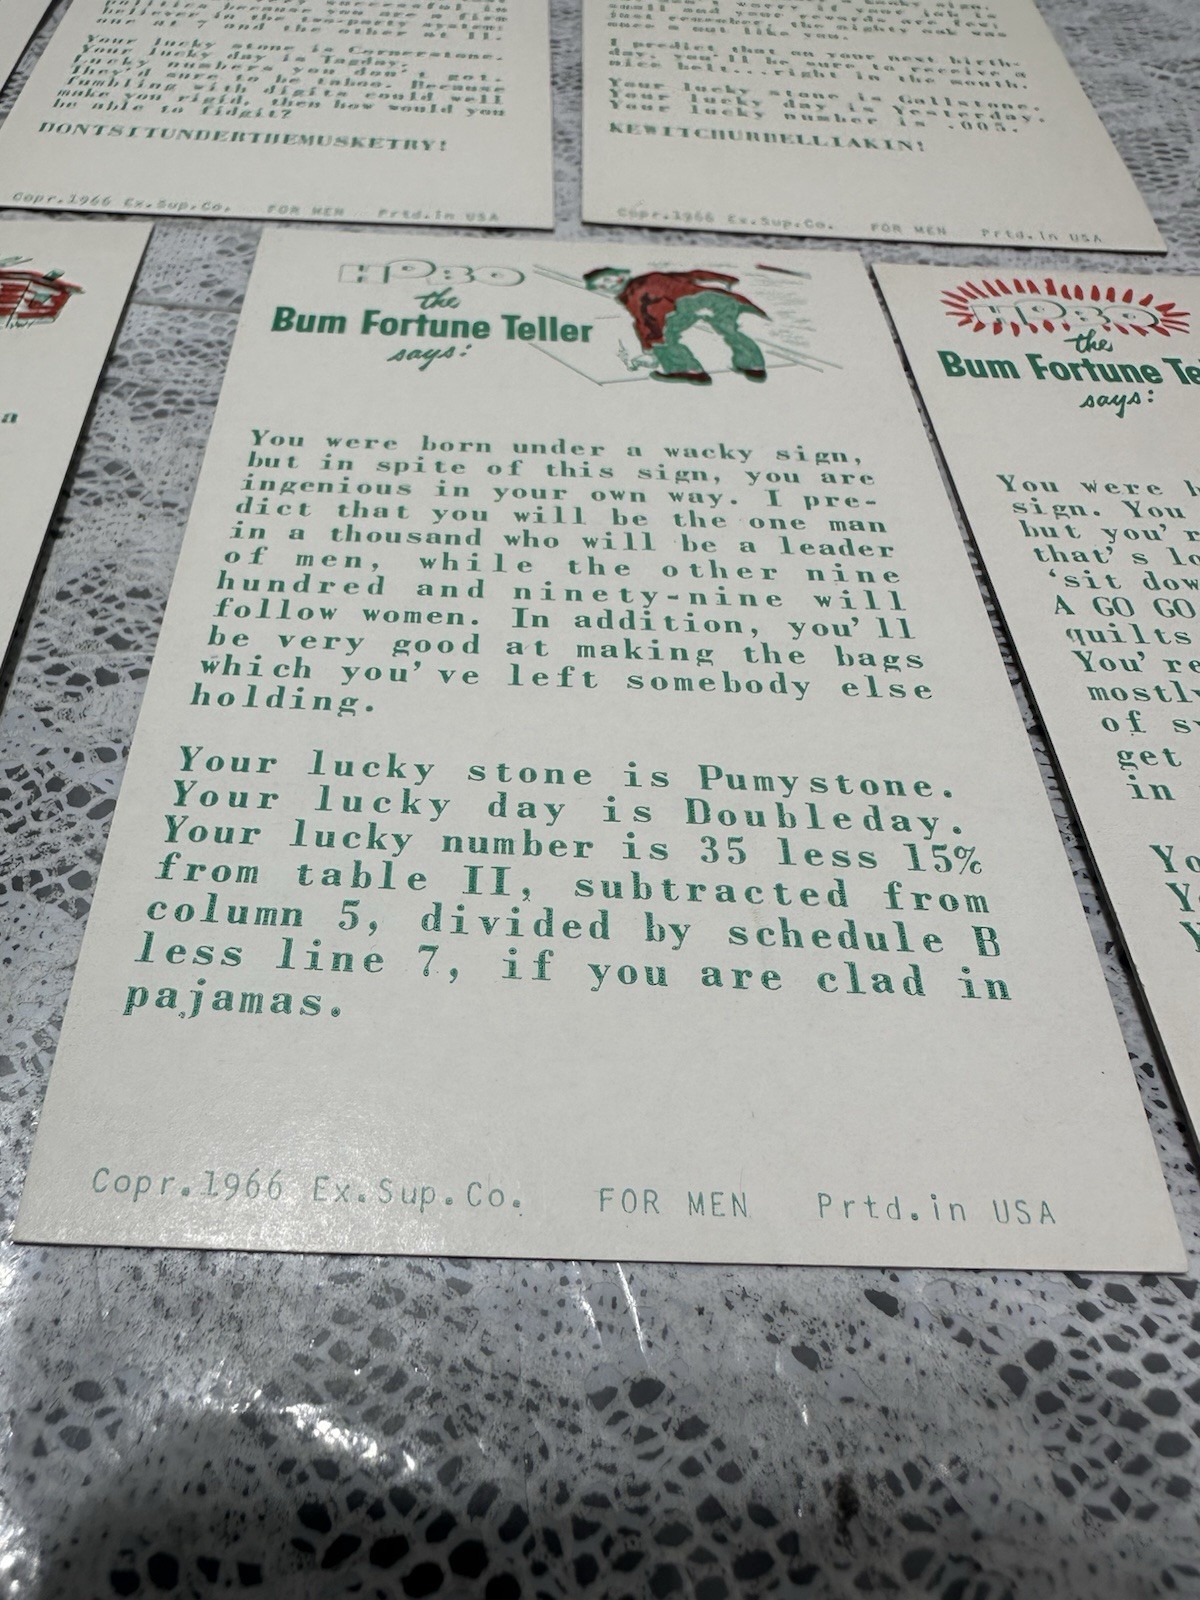 politics because you are a firm
believer in the two-party system:
one at 7 and the other at 11.
Your lucky stone is Cornerstone.
Your lucky day is Tagday.
Lucky numbers you don't got.
They'd sure to be taboo. Because
fumbling with digits could well
make you rigid, then how would you
be able to fidgit?
DONTSITUNDERTHEMUSKETRY!
Copr.1966 Ex.Sup.Co. FOR MEN Prtd.in USA
small and your rewards are few
just remember, the mighty oak was
once a nut like you.
I predict that on your next birth-
day, you'll be sure to receive a
nice belt...right in the mouth.
Your lucky stone is Gallstone.
Your lucky day is Yesterday.
Your lucky number is .005.
KEWITCHURBELLIAKIN!
Copr.1966 Ex.Sup.Co. FOR MEN Prtd.in USA
a
HOBO
the
Bum Fortune Teller
says:
You were born under a wacky sign,
but in spite of this sign, you are
ingenious in your own way. I pre-
dict that you will be the one man
in a thousand who will be a leader
of men, while the other nine
hundred and ninety-nine will
follow women. In addition, you'll
be very good at making the bags
which you've left somebody else
holding.
Your lucky stone is Pumystone.
Your lucky day is Doubleday.
Your lucky number is 35 less 15%
from table II, subtracted from
column 5, divided by schedule B
less line 7, if you are clad in
pajamas.
Copr.1966 Ex.Sup.Co. FOR MEN Prtd.in USA
HOBO
the
Bum Fortune Te
says:
You were b
sign. You
but you'r
that's lo
'sit dow
A GO GO
quilts
You're
mostly
of s
get
in
Yo
Y
Y